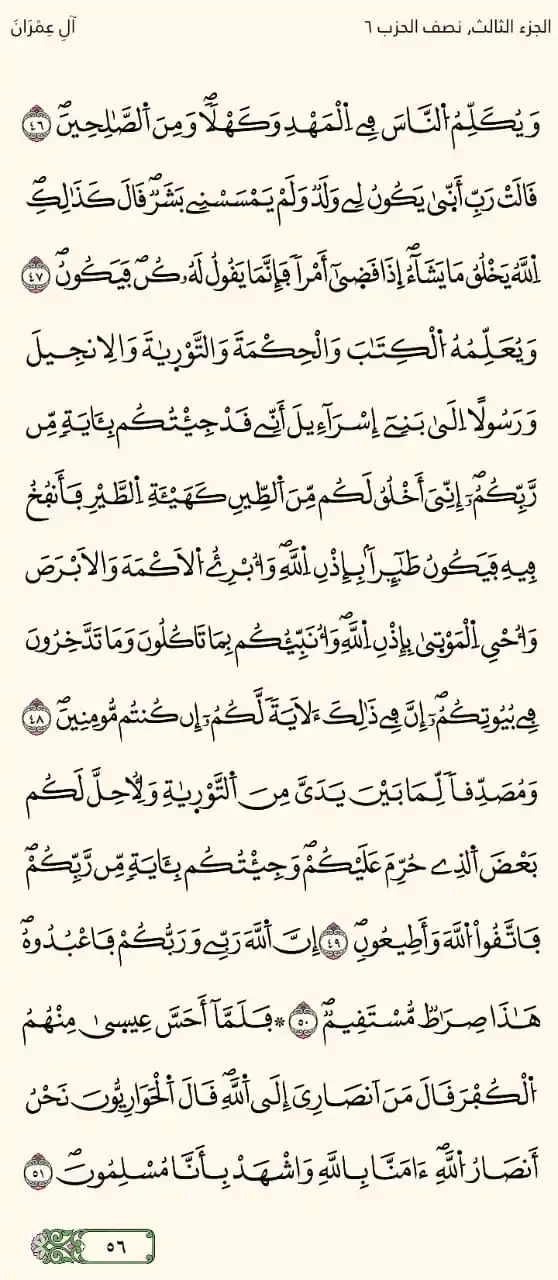 الجزء الثالث, نصف الحزب ٦
آلِ عِمْرَانَ
وَيُكَلِّمُ اُ۬لنَّاسَ فِے اِ۬لْمَهْدِ وَكَهْلاٗۖ وَمِنَ اَ۬لصَّٰلِحِينَۖ ٤٦
قَالَتْ رَبِّ أَنّ۪يٰ يَكُونُ لِے وَلَدٞ وَلَمْ يَمْسَسْنِے بَشَرٞۖ قَالَ كَذَٰلِكِۖ
اِ۬للَّهُ يَخْلُقُ مَا يَشَآءُۖ اِذَا قَض۪يٰٓ أَمْراٗ فَإِنَّمَا يَقُولُ لَهُۥ كُنۖ فَيَكُونُۖ ٤٧
وَيُعَلِّمُهُ اُ۬لْكِتَٰبَ وَالْحِكْمَةَ وَالتَّوْر۪يٰةَ وَالِانجِيلَ
وَرَسُولًا اِلَىٰ بَنِےٓ إِسْرَآءِيلَ أَنِّے قَدْ جِئْتُكُم بِـَٔايَةٖ مِّن
رَّبِّكُمُۥٓۖ إِنِّيَ أَخْلُقُ لَكُم مِّنَ اَ۬لطِّينِ كَهَيْـَٔةِ اِ۬لطَّيْرِ فَأَنفُخُ
فِيهِ فَيَكُونُ طَٰٓئِراَۢ بِإِذْنِ اِ۬للَّهِۖ وَأُبْرِۓُ اُ۬لَاكْمَهَ وَالَابْرَصَ
وَأُحْيِ اِ۬لْمَوْت۪يٰ بِإِذْنِ اِ۬للَّهِۖ وَأُنَبِّئُكُم بِمَا تَاكُلُونَ وَمَا تَدَّخِرُونَ
فِے بُيُوتِكُمُۥٓۖ إِنَّ فِے ذَٰلِكَ ءَلَايَةٗ لَّكُمُۥٓ إِن كُنتُم مُّومِنِينَۖ ٤٨
وَمُصَدِّقاٗ لِّمَا بَيْنَ يَدَيَّ مِنَ اَ۬لتَّوْر۪يٰةِ وَلِأُحِلَّ لَكُم
بَعْضَ اَ۬لذِے حُرِّمَ عَلَيْكُمْۖ وَجِئْتُكُم بِـَٔايَةٖ مِّن رَّبِّكُمْۖ
فَاتَّقُواْ اُ۬للَّهَ وَأَطِيعُونِۖ ٤٩ إِنَّ اَ۬للَّهَ رَبِّے وَرَبُّكُمْ فَاعْبُدُوهُۖ
هَٰذَا صِرَٰطٞ مُّسْتَقِيمٞۖ ٥٠ ۞ فَلَمَّآ أَحَسَّ عِيس۪يٰ مِنْهُمُ
اُ۬لْكُفْرَ قَالَ مَنَ اَنصَارِيَ إِلَى اَ۬للَّهِۖ قَالَ اَ۬لْحَوَارِيُّونَ نَحْنُ
أَنصَارُ اُ۬للَّهِۖ ءَامَنَّا بِاللَّهِ وَاشْهَدْ بِأَنَّا مُسْلِمُونَۖ ٥١
٥٦